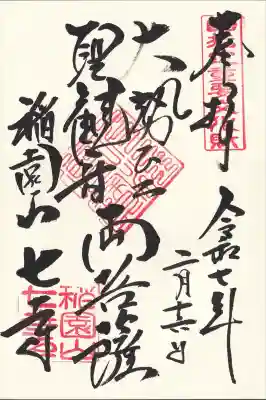 奉拝
令和七年
二月十六日
大勢至
聖観音両菩薩
稲園山七寺
稲園山
七寺